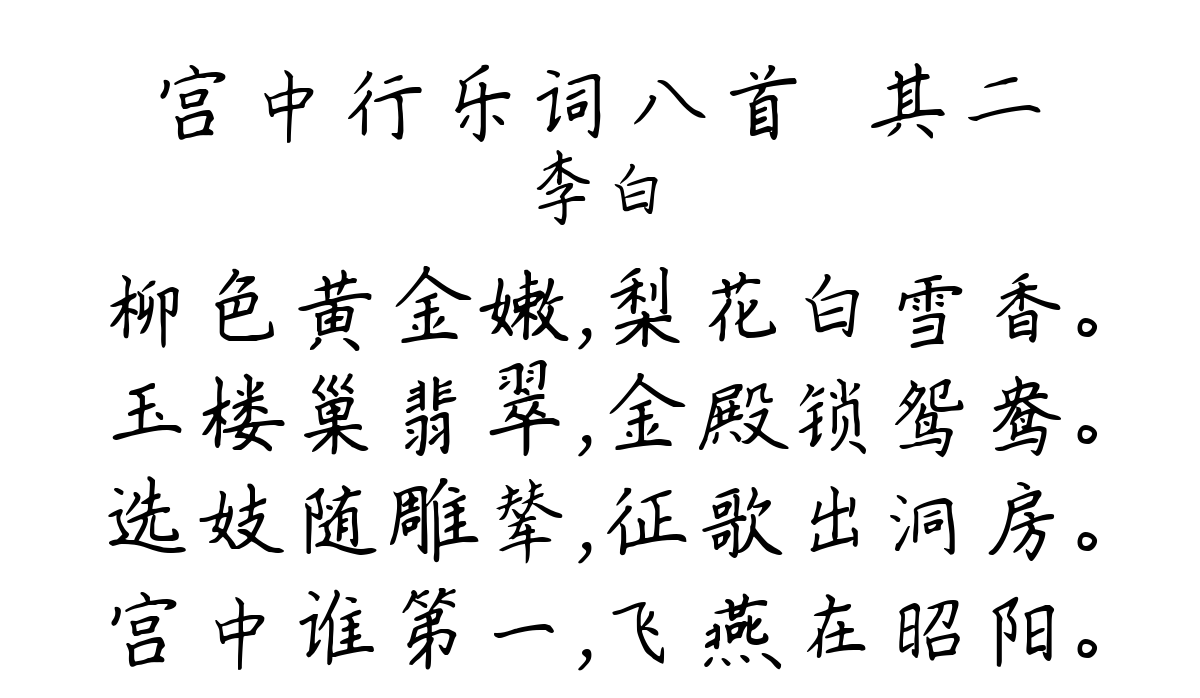 宫中行乐词八首 其二
李白
柳色黄金嫩,梨花白雪香。
玉楼巢翡翠,金殿锁鸳鸯。
选妓随雕辇,征歌出洞房。
宫中谁第一,飞燕在昭阳。